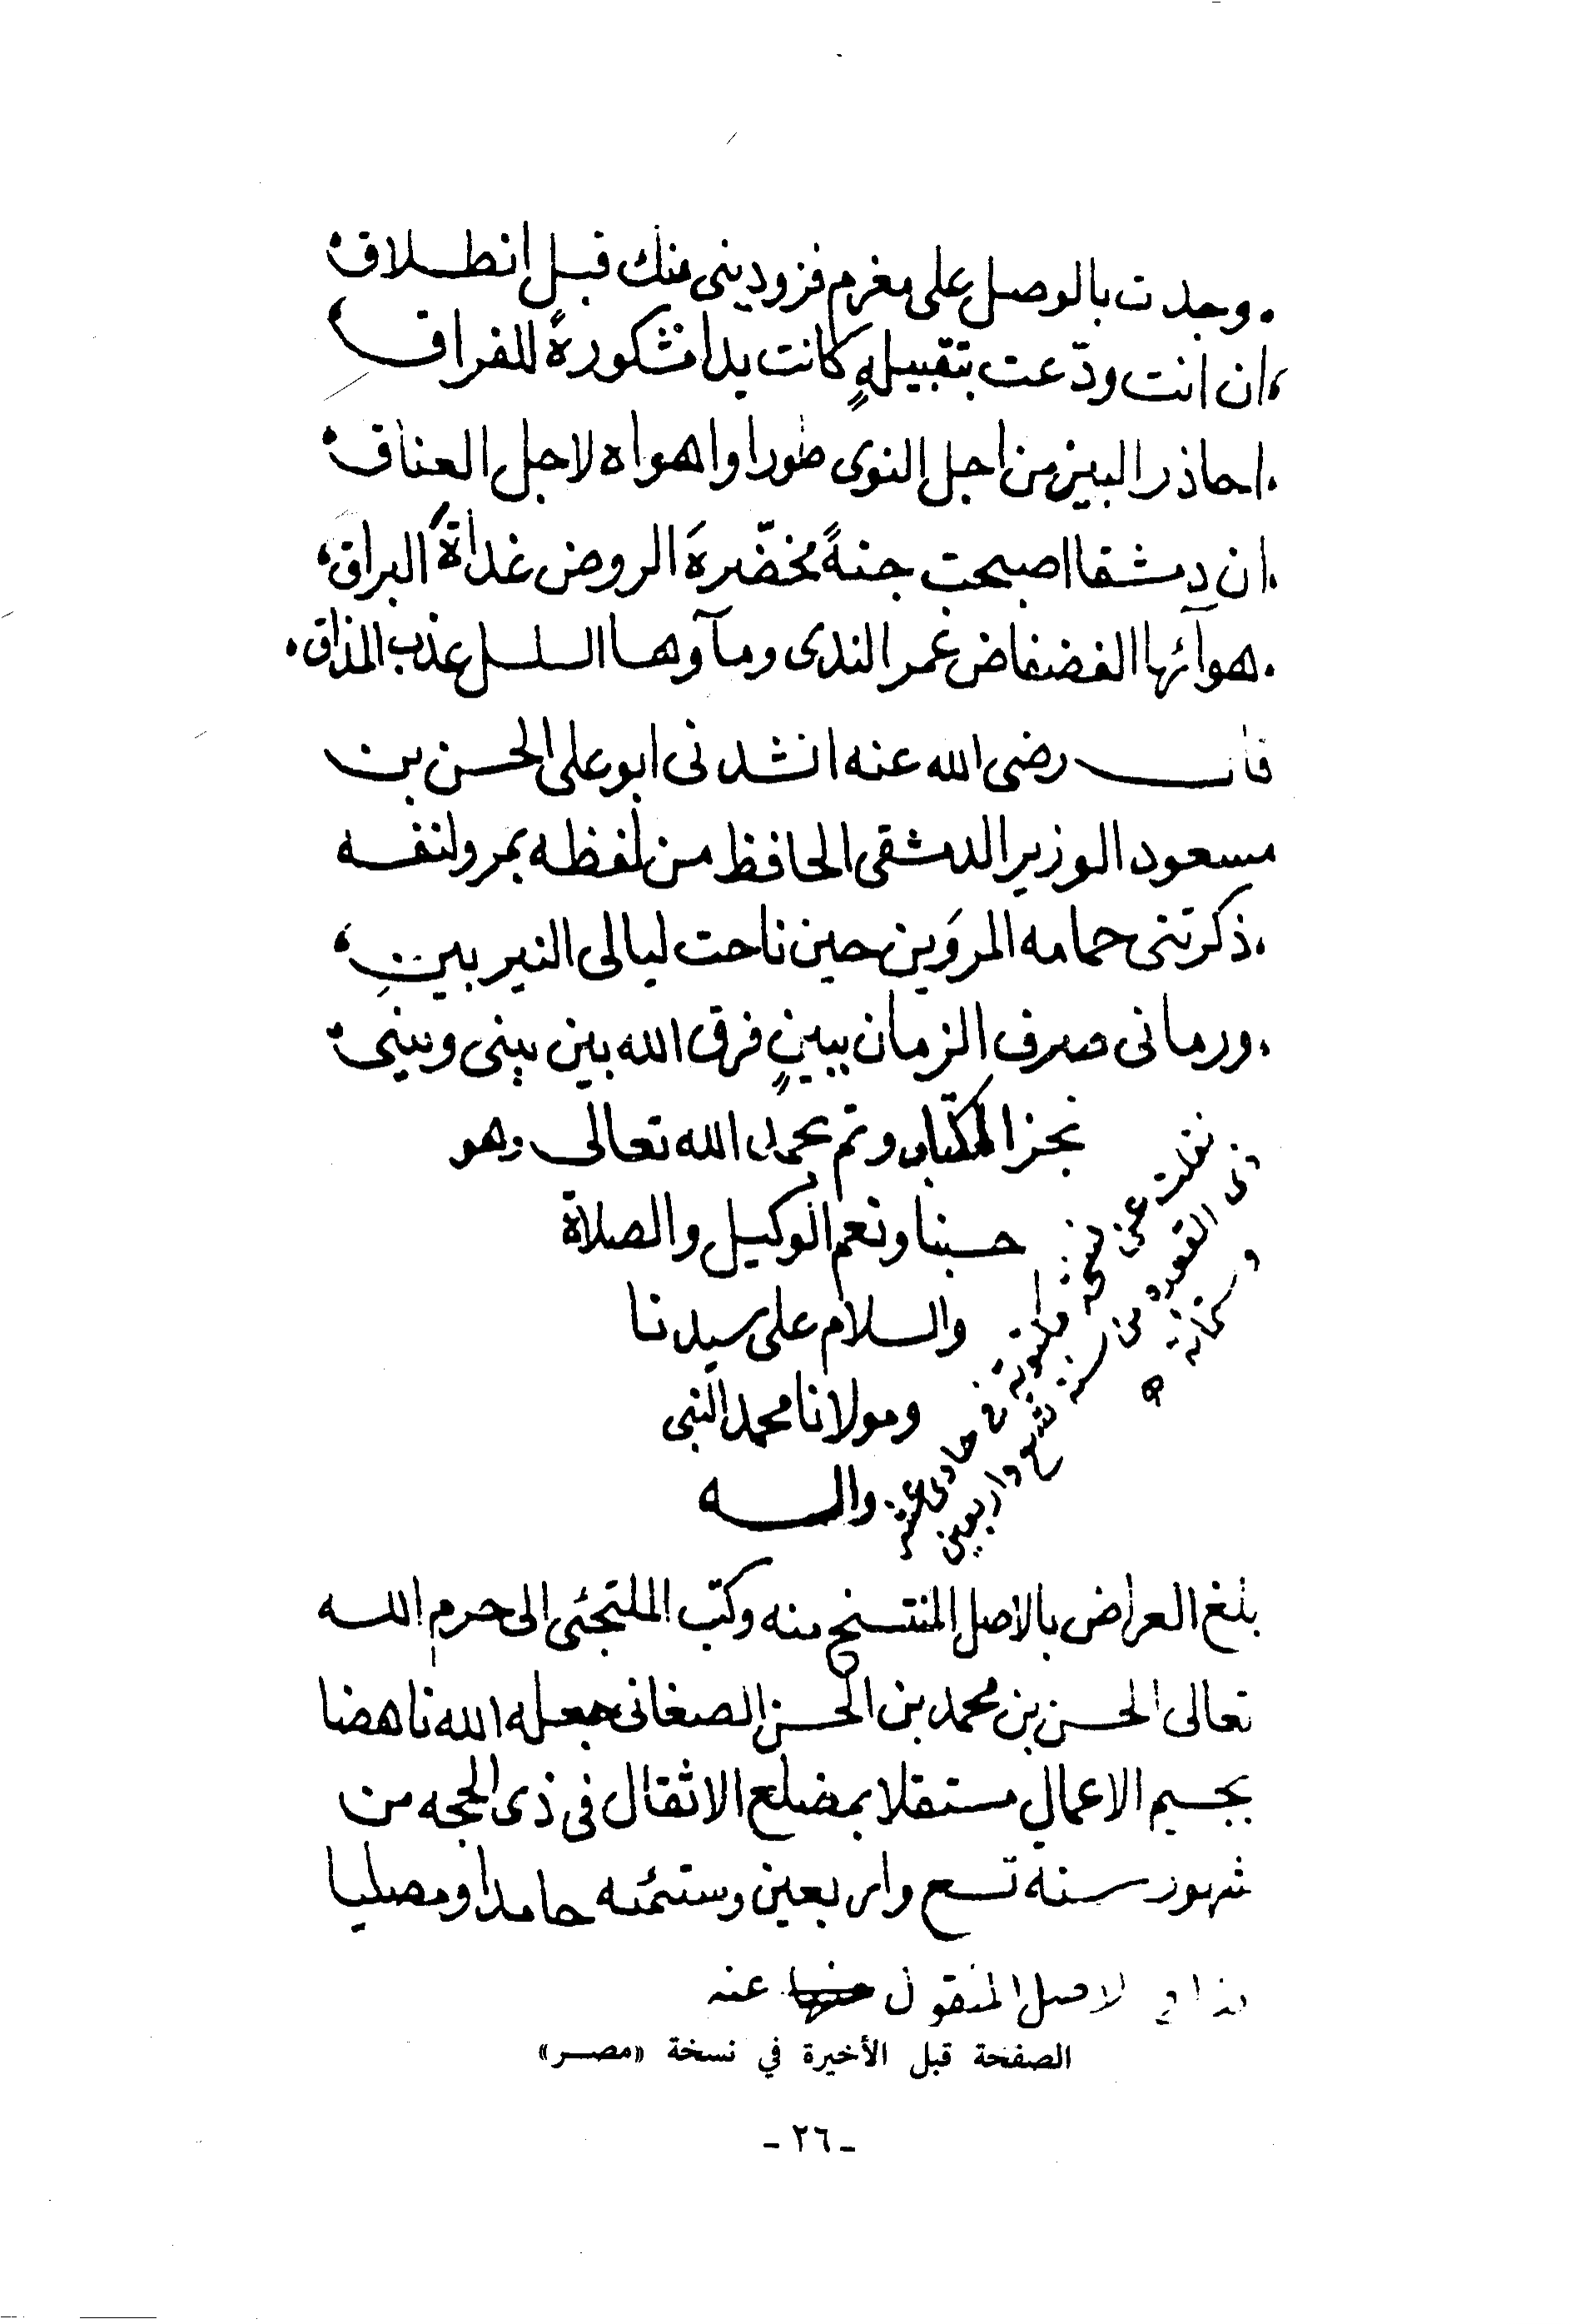 . وجدت بالوصل على مغرم فزوديني منك قبل انطلاق .
، ان انت ودّعت بتقبيلهٍ كانت يدا مشكورةً للفراق ،
. احاذر البين من اجل النوى طورا واهواه لاجل العناق .
. ان دمشقا اصبحت جنةً مخضّرةَ الروض غداةَ البراق ،
. هوآئها الفضفاض غمر الندى ومآوها السلسل عذب المذاق .
قال رضى الله عنه انشدنى ابو على الحسن بن
مسعود الوزير الدمشقى الحافظ من لفظه بمرو لنفسه
. ذكرتنى حمامه المروَين حين ناحت ليالى النيربينِ ،
. ورمانى صرف الزمان ببينٍ فرق الله بين بينى وبينى .
نجز الكتاب وتم بحمد الله تعالى وهو
حسبنا ونعم الوكيل والصلاة
والسلام على سيدنا
ومولانا محمد النبى
واله
نقلت عن نسخة مكتوبة في حادى عشر
ذى القعده من سنة تسع واربعين
وستمائة ه
بلغ العراض بالاصل المنتسخ منه وكتب الملتجئى الى حرم الله
تعالى الحسن بن محمد بن الحسن الصغانى جعله الله ناهضا
بجسيم الاعمال مستقلا بمضلع الاثقال فى ذى الحجه من
شهور سنه تسع واربعين وستمئه حامدا ومصليا
لاصل المنقول منها عنه
الصفحة قبل الأخيرة في نسخة «مصر»
- ٢٦ -